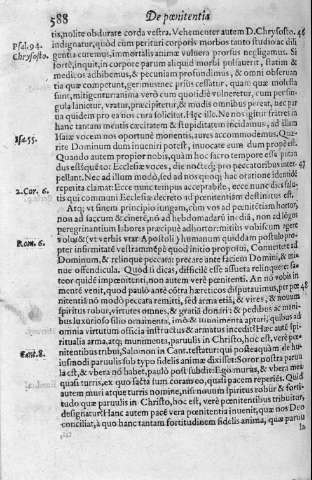 588 De pœnitentia
tis, nolite obdurare corda vestra. Vehementer autem D. Chrysosto. 46
Psal. 94. indignatur, quòd cum perituri corporis morbos tanto studio ac dili
Chrysosto. gentia curemus, immortalis animæ vulnera prorsus negligamus. Si
fortè, inquit, in corpore parum aliquid morbi possuerit, statim &
medicos adhibemus, & pecuniam profundimus, & omni observan
tia quæ competunt, gerimus: nec prius cessatur, quam quæ molesta
sunt, mitigentur: anima verò cum quotidie vulneretur, cum per sin-
gula lanietur, vratur, præcipitetur, & modis omnibus pereat, nec par
ua quidem pro ea nos cura solicitat. Hæc ille. Ne nos igitur fratres in
hanc tantam mentis cæcitatem & stupiditatem incidamus, ad illam
Isa. 55. Isaiæ vocem nos oportunè monentis, aures accommodemus. Quæ-
rite Dominum dum inueniri potest, inuocate eum dum propè est.
Quando autem propior nobis, quàm hoc sacro tempore esse putan
dus est? quo tot Ecclesiæ voces, die noctéq; pro peccatoribus inter- 47
pellant. Nec ad illum modò, sed ad nos quoq; hac oratione identidẽ
2. Cor. 6. repetita clamat: Ecce nunc tempus acceptabile, ecce nunc dies salu-
tis qui communi Ecclesiæ decreto ad pœnitentiam destinatus est.
Atq; vt finem principio iungam, cùm vos ad pœnitẽtiam hortor,
non ad saccum & cinerẽ, nõ ad hebdomadarũ inediã, non ad lõgos
peregrinantium labores præcipuè adhortor: mitiùs vobiscum agere
Rom. 6. volo: & (vt verbis vtar Apostoli) humanum quiddam postulo pro-
pter infirmitatẽ vestram: népè quod initio proposui, Conuertere ad
Dominum, & relinque peccata: precare ante faciem Domini, & mi-
nue offendicula. Quod si dicas, difficilè esse assueta relinquere: fa-
teor quidẽ impœnitenti, non autem verè pœnitenti. An nõ vobis in
mentẽ venit, quod paulo antè cõtra hæreticos disputauimus, per pœ 48
nitentiã nõ modò peccata remitti, sed arma etiã, & vires, & nouum
spiritus robur, virtutes omnes, & gratiã donari: & pedibus ac meni-
bus luxurioso filio ornamenta, imò & munimenta aptari, quibus ad
omnia virtutum officia instructus & armatus incedit? Hæc autẽ spi-
ritualia arma, atq; munimenta, paruulis in Christo, hoc est, verè pœ-
Cant. 8. nitentibus tribui, Salomon in Cant. testatur: qui posteaquàm de hu-
iusmodi paruulis sub typo fidelis animæ dixisset: Soror nostra parua
la est, & vbera nõ habet, paulò post subdit: Ego murus, & vbera mea
quasi turris, ex quo facta sum coram eo, quasi pacem reperiẽs. Quid
autem muri atque turris nomine, nisi nouum spiritus robur & forti-
tudo quæ paruulis in Christo, hoc est, verè pœnitentibus tribuitur,
designatur? Hanc autem pacẽ vera pœnitentia inuenit, quæ nos Deo
conciliat, à quo hanc tantam fortitudinem fidelis anima, quæ paruu
la